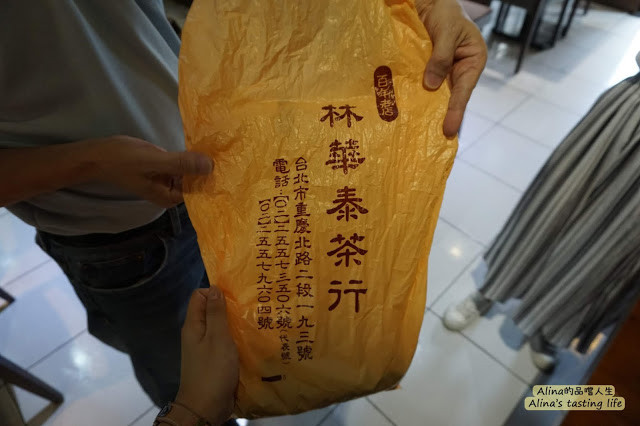 百年老店
林華泰茶行
台北市重慶北路二段一九三號
電話:【〇二】二五五七三五〇六號(代表號)
【〇二】二五五七九六〇四號
Alina的品嚐人生
Alina's tasting life